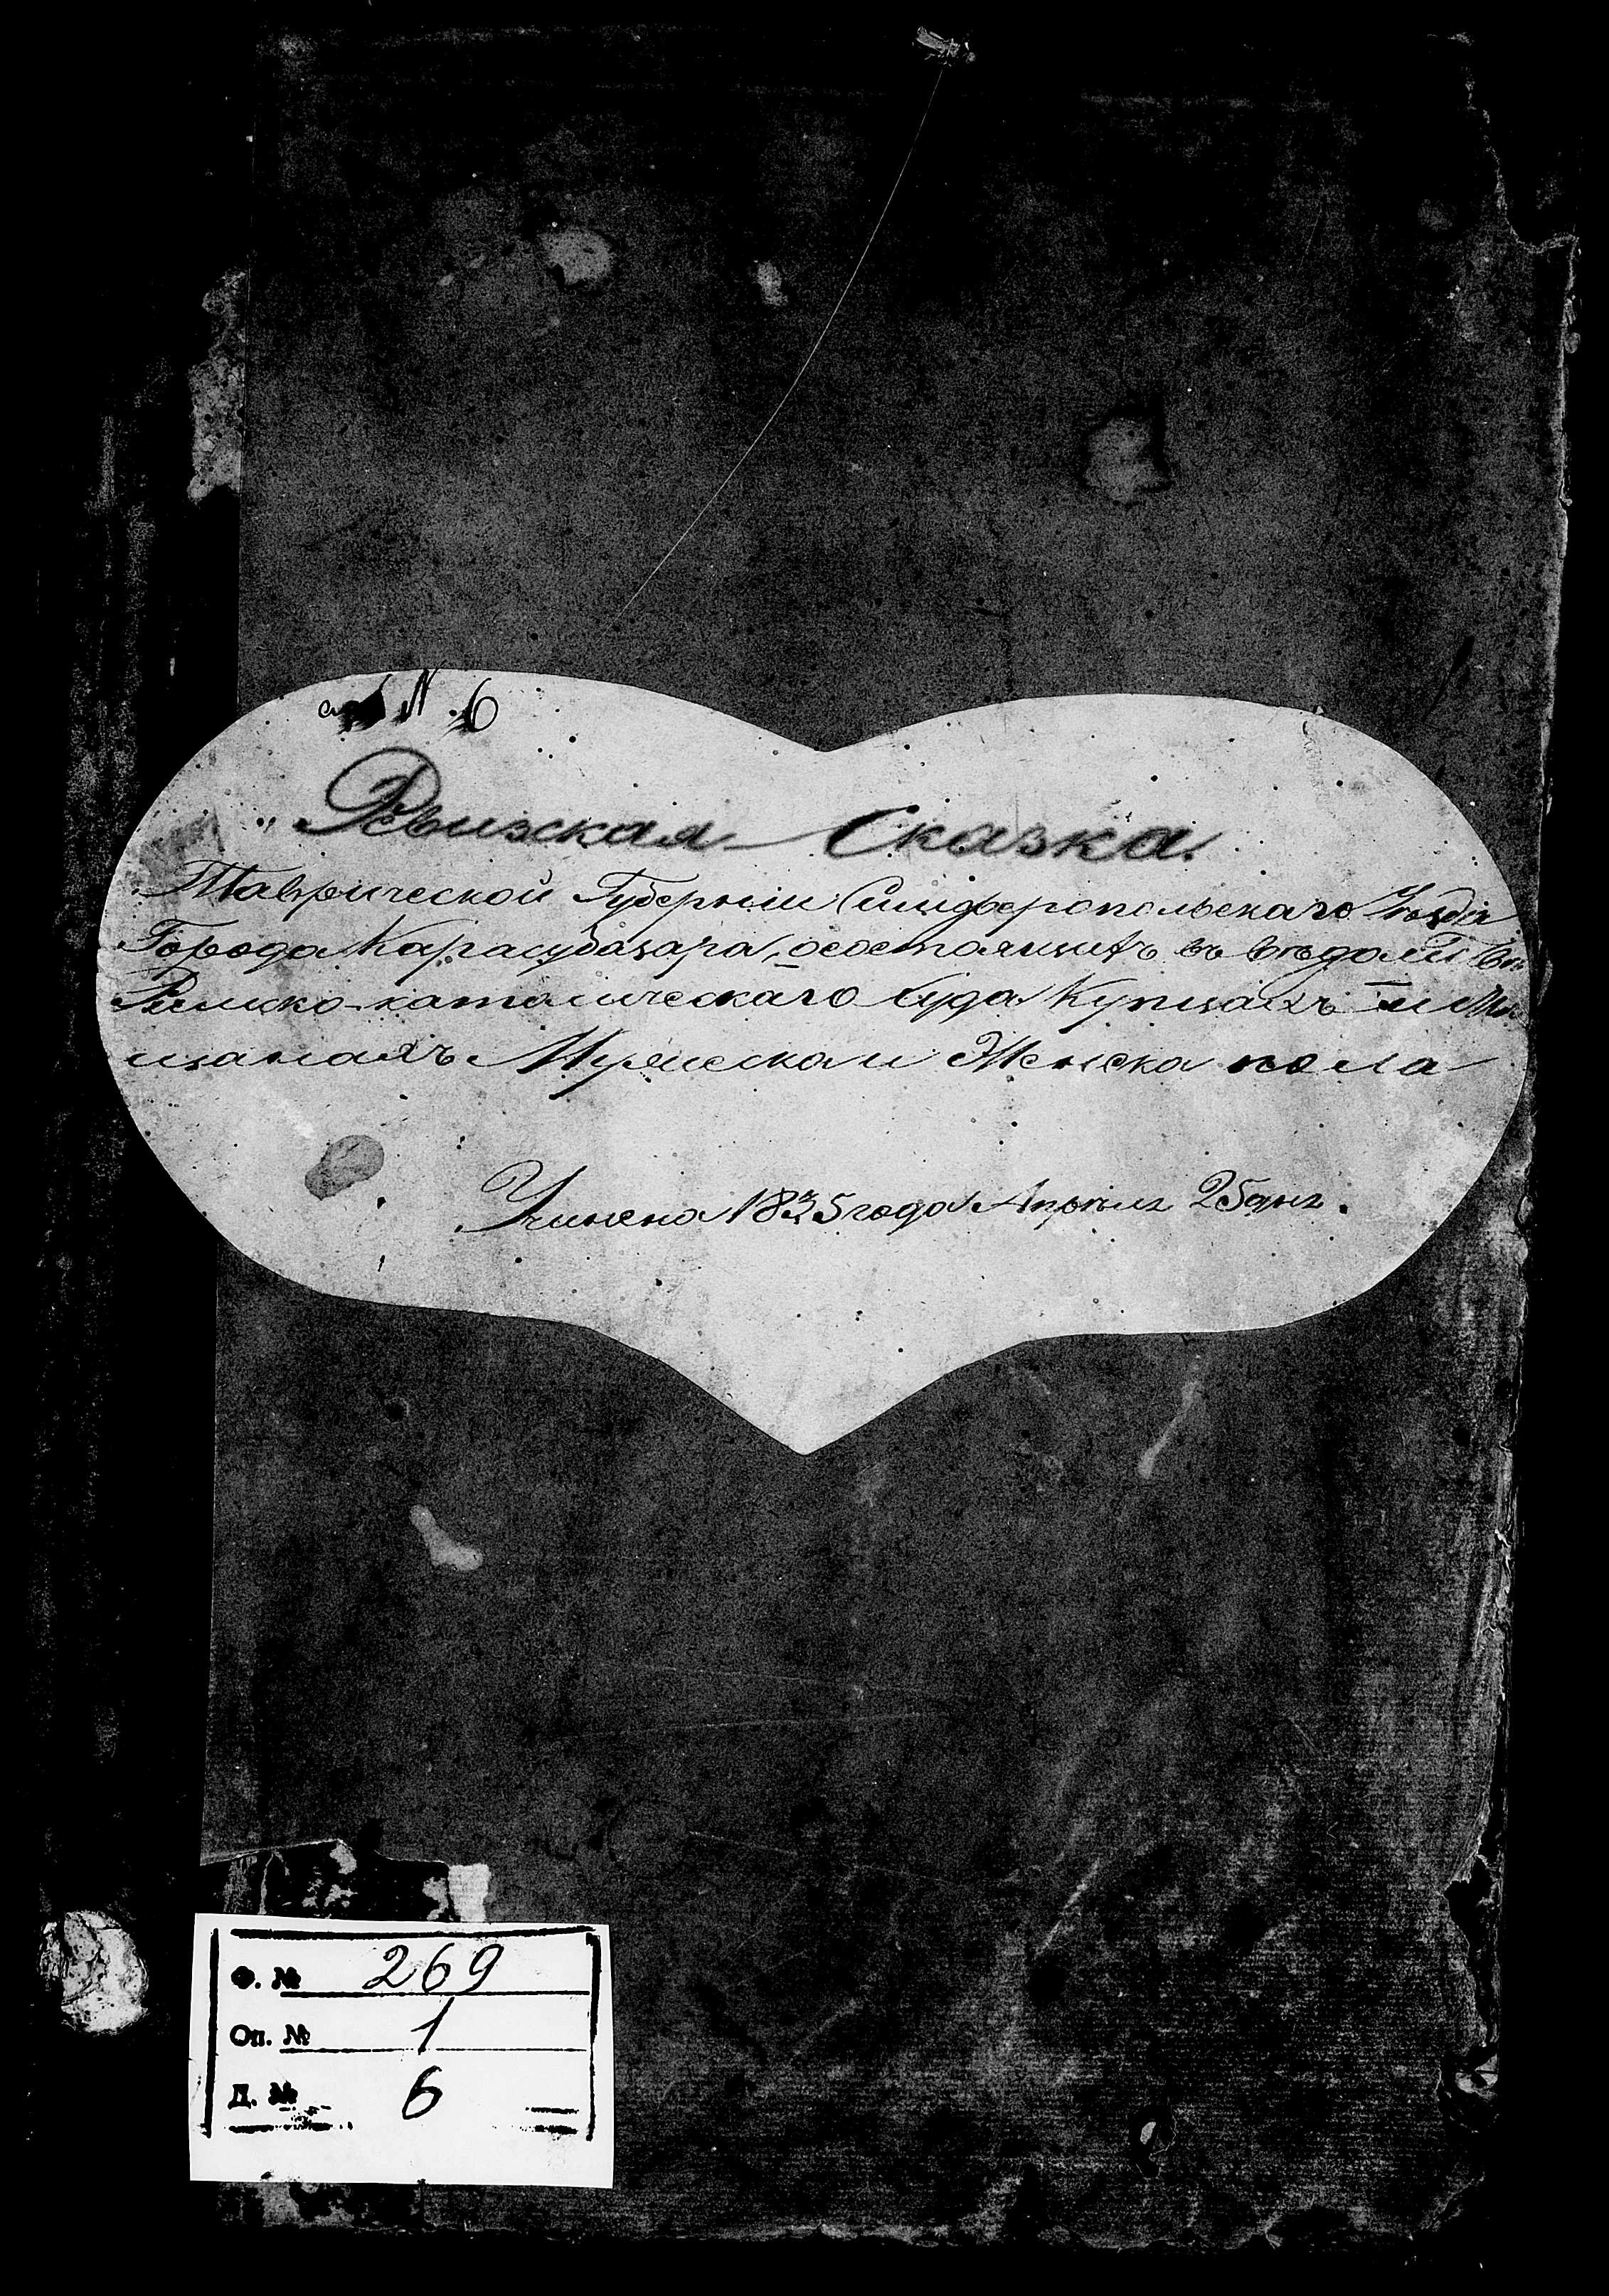 N. 6
Ревизская Сказка.
Таврической Губернии Симферопольскаго Уѣзда
Города Карасубазара, осостоящихъ въ вѣдомст
Римско-католическаго Суда Купцахъ и Мѣ
щанахъ Мужеска и Женска пола
Учинена 1835 года Апрѣля 25 дня.
Ф. № 269
Оп. № 1
Д. № 6